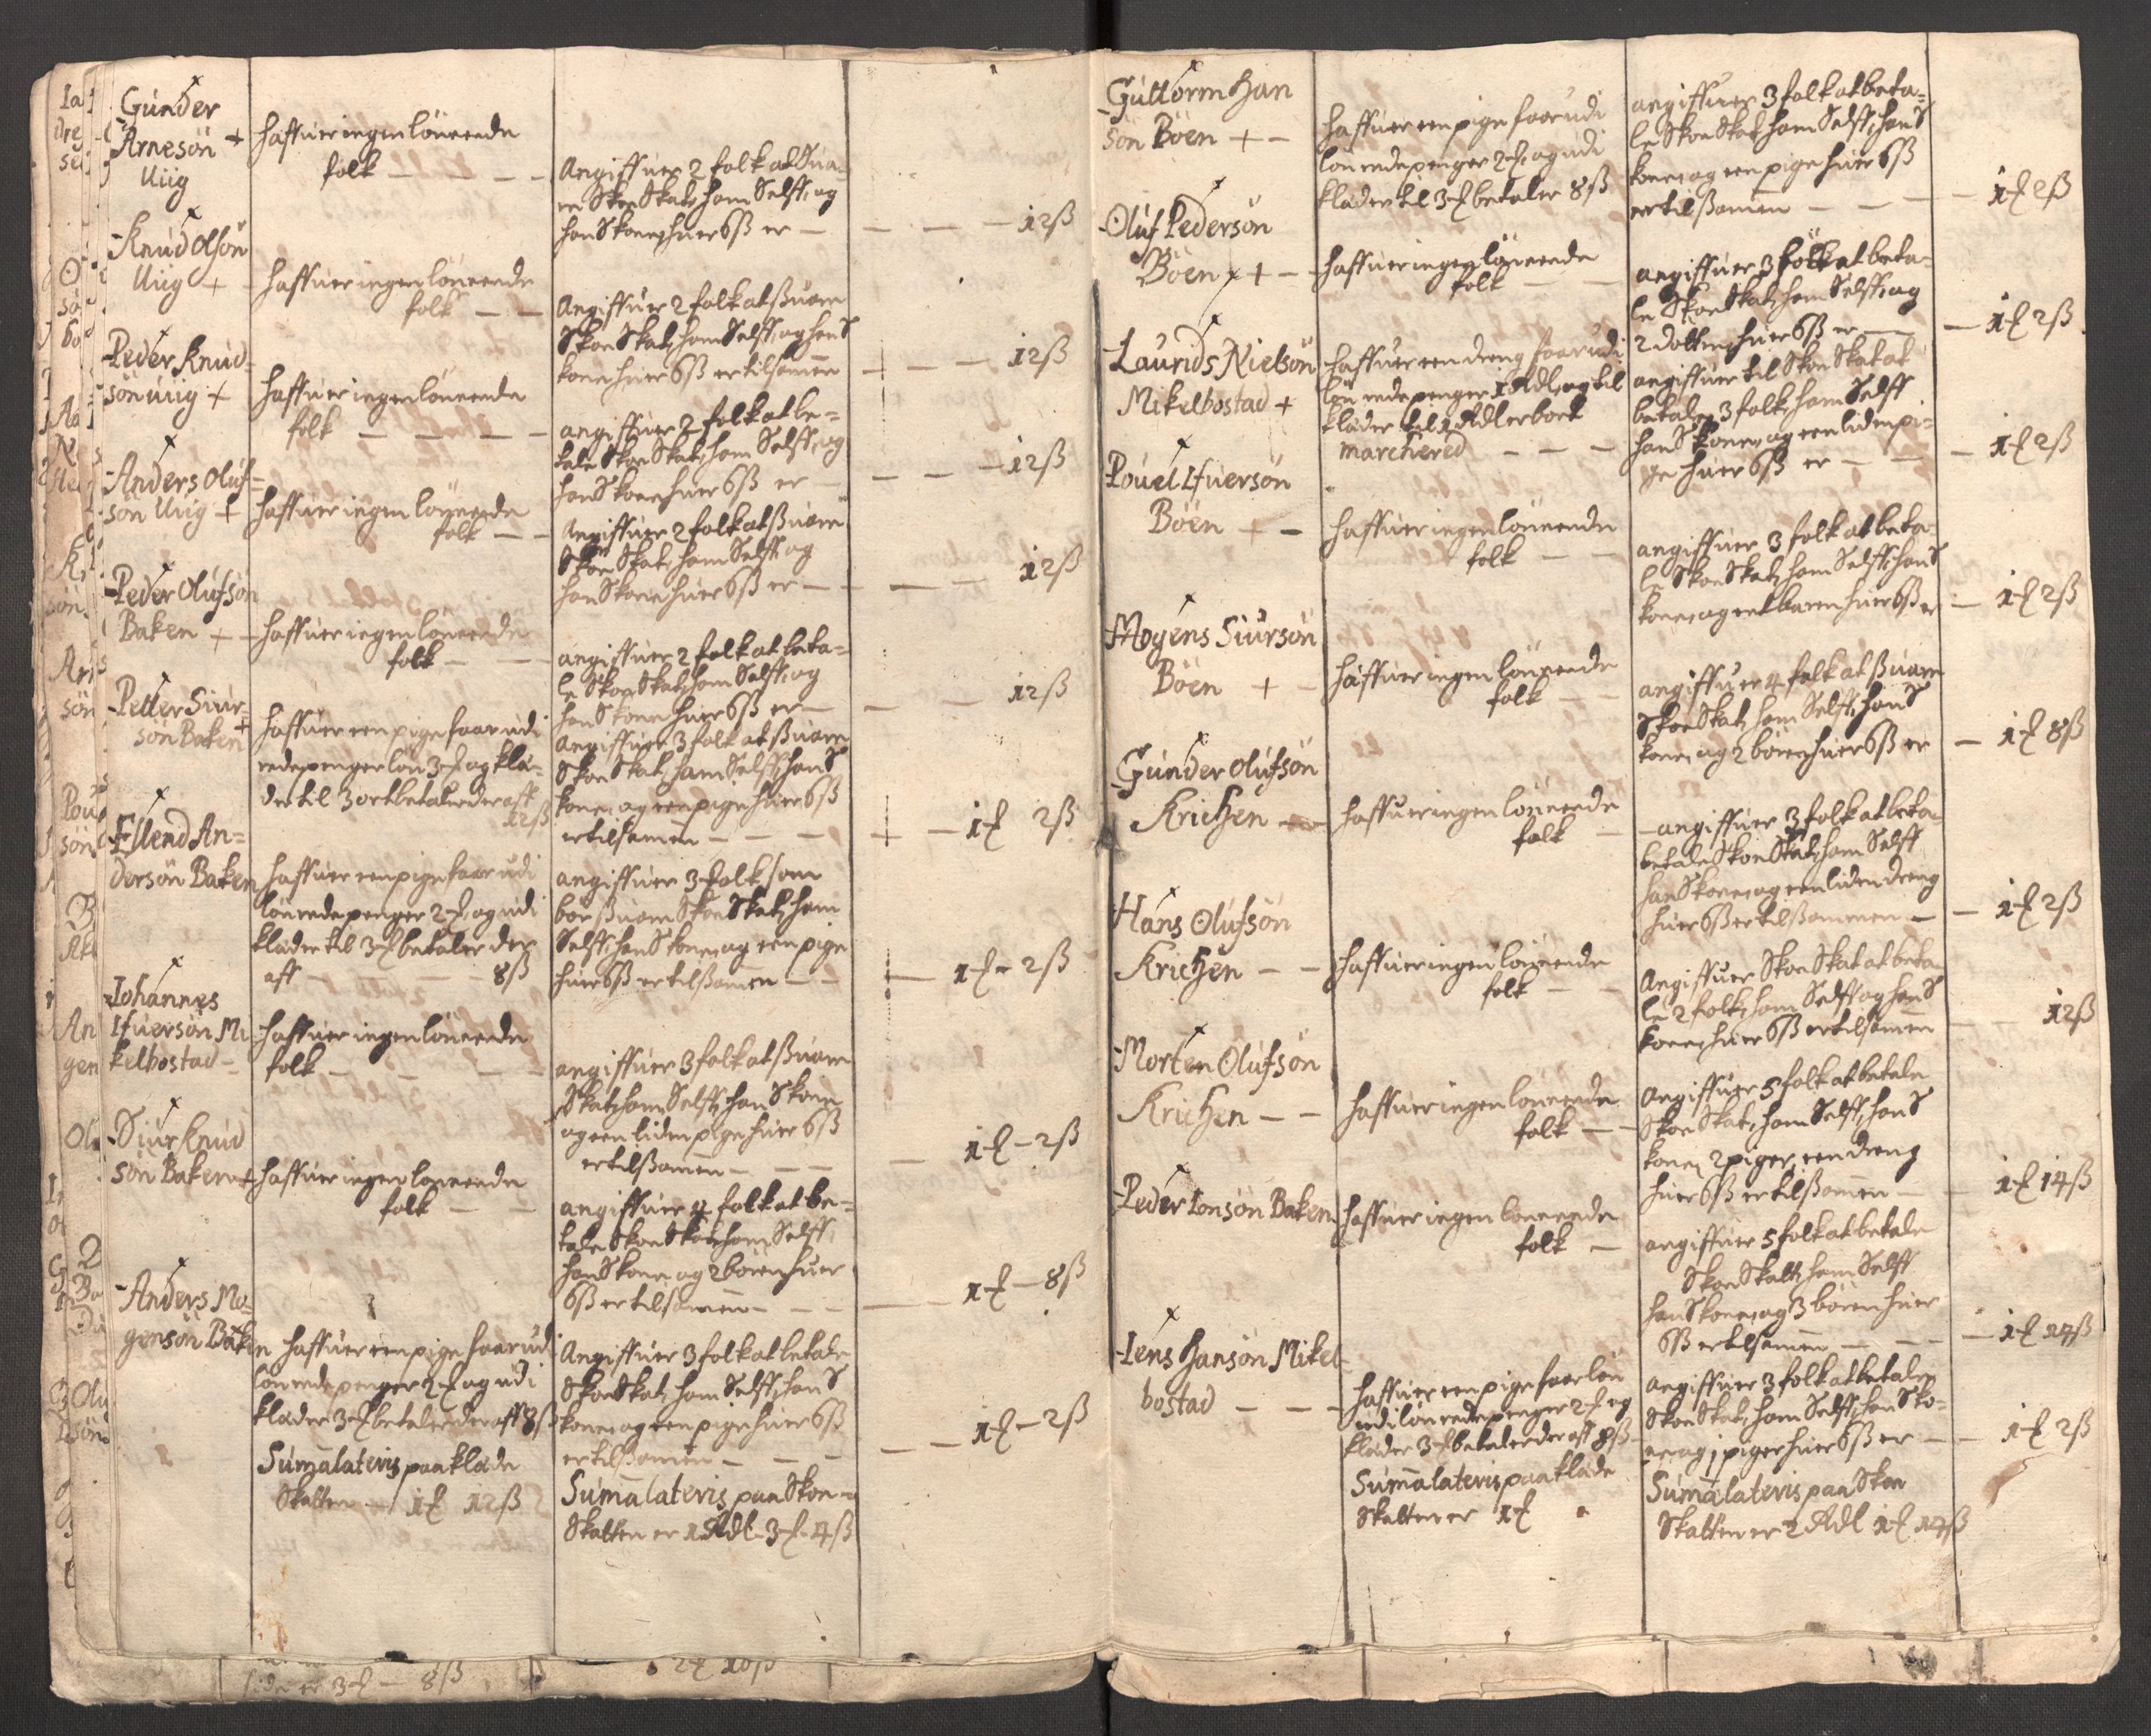 Gunder
Arnesön +
Uiig
haffuer ingen lönnende
folk
Angiffuer 2 folk at Sua-
re Skoe Skat, ham Selff, og
hans kone, huer 6 ß er
12 ß
Knud Olsön
Uiig +
haffuer ingen lönnende
folk
Angiffuer 2 folk at ßuare
Skoe Skat, ham Selff, og hans
kone huer 6 ß er tilsamen
12 ß
Peder Knud-
sön Uiig +
haffuer ingen lönnende
folk
angiffuer 2 folk at be-
tale Skoe Skat, ham Selff, og
hans kone huer 6 ß er
12 ß
Anders Oluf-
sön Uiig +
haffuer ingen lönnende
folk
Angiffuer 2 folk at ßuare
Skoe Skat, ham Selff og
hans kone huer 6 ß er
12 ß
Peder Olufsön
Baken +
haffuer ingen lönnende
folk
angiffuer 2 folk at beta-
le Skoe Skat, ham Selff, og
hans kone huer 6 ß er
12 ß
Petter Siur-
sön Baken +
haffuer een pige faar udi
rede penger lön 3 ꝉ og klæ-
der til 3 ort betaler der aff
12 ß
angiffuer 3 folk at ßuare
Skoe Skat, ham Selff, hans
kone, og een pige huer 6 ß
er tilsamen
1 ꝉ 2 ß
Ellend An-
dersön Baken
haffuer een pige faar udi
lön rede penger 2 ꝉ, og udi
klæder til 3 ꝉ betaler der
aff 8 ß
angiffuer 3 folk som
bör ßuare Skoe Skat, ham
Selff, hans kone, og een pige
huer 6 ß er tilßamen
1 ꝉ 2 ß
Johannes
Ifuersön Mi-
kelbostad
haffuer ingen lönnende
folk
angiffuer 3 folk at ßuare
Skat, ham Selff, hans kone
og een liden pige huer 6 ß
er tilßamen
1 ꝉ 2 ß
Siur Knud
sön Baken +
haffuer ingen lönnende
folk
angiffuer 4 folk at be-
tale Skoe Skat, ham Selff,
hans kone, og 2 börn huer
6 ß er tilsamen
1 ꝉ 8 ß
Anders Mo-
gensön Baken
haffuer een pige faar udi
lön rede penger 2 ꝉ og udi
klæder 3 ꝉ betaler der aff 8 ß
Angiffuer 3 folk at betale
Skoe Skat, ham Selff, hans
kone og een pige huer 6 ß
er tilßamen
1 ꝉ 2 ß
Suma lateris paa klæde
Skatten 1 ꝉ 12 ß
Suma lateris paa Skoe
Skatten er 1 Rdl 3 ꝉ 4 ß
Guttorm Han
sön Böen +
haffuer een pige faar udi
lön rede penger 2 ꝉ, og udi
klæder til 3 ꝉ betaler 8 ß
angiffuer 3 folk at beta-
le Skoe Skat, ham Selff, hans
kone, og een pige huer 6 ß
er tilßamen
1 ꝉ 2 ß
Oluf Pedersön
Böen +
haffuer ingen lönnende
folk
angiffuer 3 folk at beta-
le Skoe Skat, ham Selff, og
2 dötter, huer 6 ß er
1 ꝉ 2 ß
Laurids Nielsön
Mikelbostad +
haffuer een dreng faar udi
lön rede penger 1 Rdl, og til
klæder til 1 Rdl er bort
marchered
angiffuer til Skoe Skat at
betale 3 folk, ham Selff
hans kone, og een liden pi-
ge huer 6 ß er
1 ꝉ 2 ß
Pouel Ifuersön
Böen +
haffuer ingen lönnende
folk
angiffuer 3 folk at beta-
le Skoe Skat, ham Selff, hans
kone, og eet baren huer 6 ß er
1 ꝉ 2 ß
Mogens Siursön
Böen +
haffuer ingen lönnende
folk
angiffuer 4 folk at ßuare
Skoe Skat, ham Selff, hans
kone, og 2 börn huer 6 ß er
1 ꝉ 8 ß
Gunder Olufsön
Krichen
haffuer ingen lönnende
folk
angiffuer 3 folk at beta-
betale Skoe Skat, ham Selff
hans kone, og een liden dreng
huer 6 ß er tilßammen
1 ꝉ 2 ß
Hans Olufsön
Krichen
haffuer ingen lönnende
folk
Angiffuer Skoe Skat at beta-
le 2 folk, ham Selff og hans
kone, huer 6 ß er tilsamen
12 ß
Morten Olufsön
Krichen
haffuer ingen lönnende
folk
Angiffuer 5 folk at betale
Skoe Skat, ham Selff, hans
kone, 2 piger, een dreng
huer 6 ß er tilßamen
1 ꝉ 14 ß
Peder Ionsön Baken
haffuer ingen lönnende
folk
angiffuer 5 folk at betale
Skoe Skatt, ham Selff
hans kone, og 3 börn huer
6 ß er tilsamen
1 ꝉ 14 ß
Iens Hansön Mikel-
bostad
haffuer een pige faar lön
udi lön rede penger 2 ꝉ og
klæder 3 ꝉ betaler der aff 8 ß
angiffuer 3 folk at betale
Skoe Skat, ham Selff, hans ko-
ne og 1 piger huer 6 ß er
1 ꝉ 2 ß
Suma lateris paa klæde
Skatten er 1 ꝉ
Suma lateris paa Skoe
Skatten er 2 Rdl 1 ꝉ 14 ß